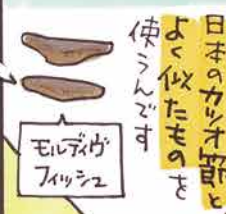 日本のカツオ節と
よく似たものを
使うんです
モルディヴ
フィッシュ